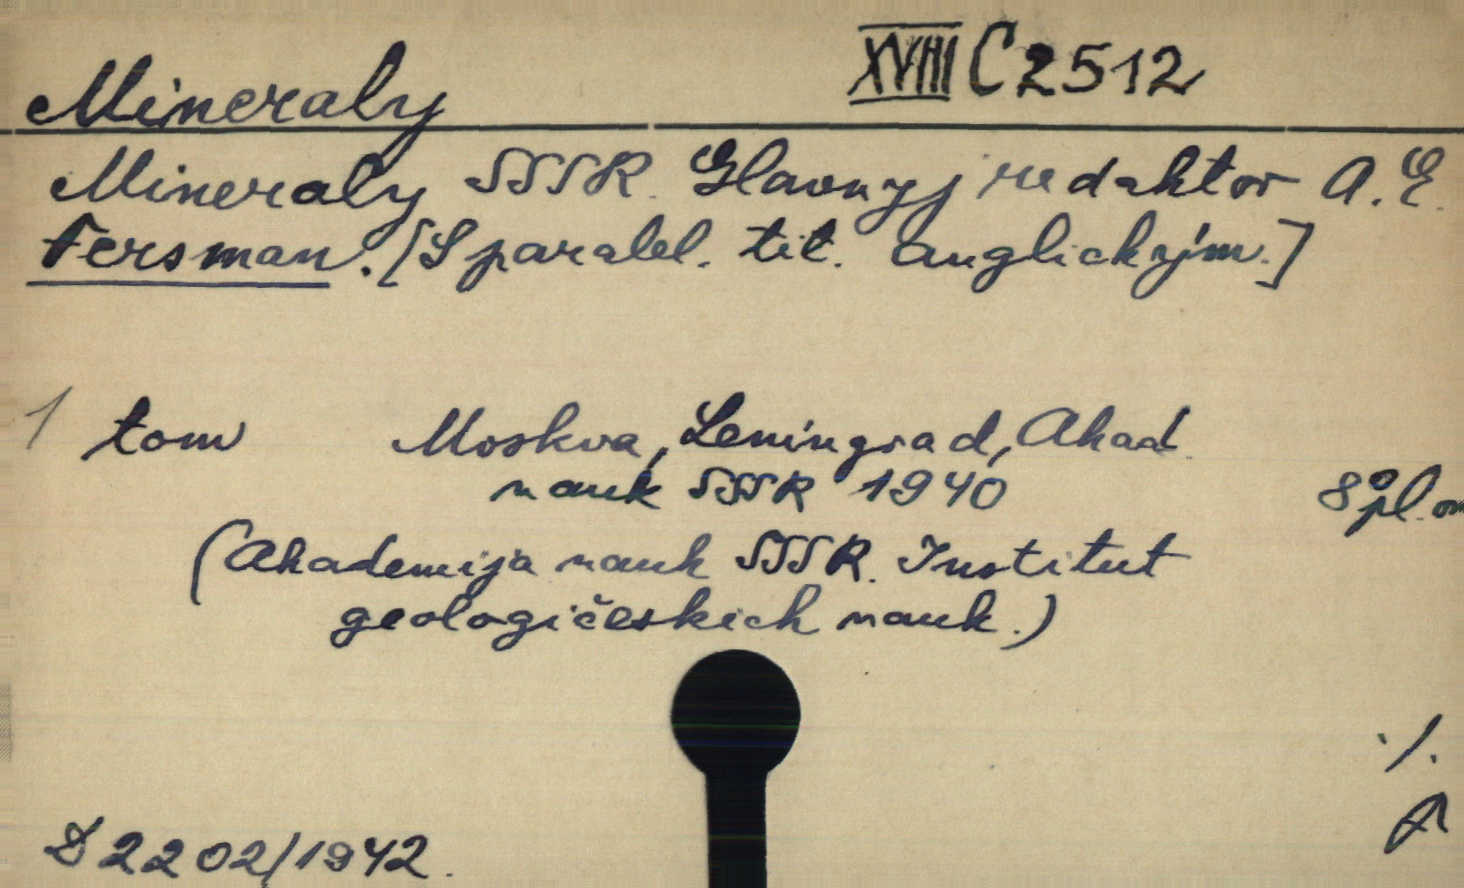 Mineraly XVIII C 2512
Mineraly SSSR. Glavnyj redaktor A. E.
Fersman. [S paralel. tit. anglickým.]
1 tom Moskva, Leningrad, Akad.
nauk SSSR 1940 8° pl. om
(Akademija nauk SSSR. Institut
geologičeskich nauk.)
./.
D 2202/1942.